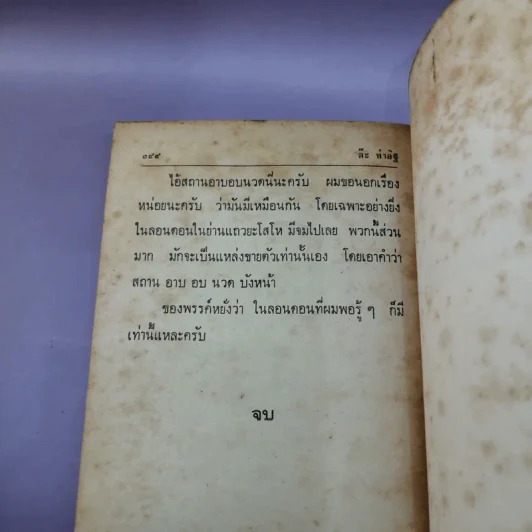 ๓๔๙ ต๊ะ ท่าอิฐ
ไอ้สถานอาบอบนวดนี่นะครับ ผมขอนอกเรื่อง
หน่อยนะครับ ว่ามันมีเหมือนกัน โดยเฉพาะอย่างยิ่ง
ในลอนดอนในย่านแถวยะโสโห มีจมไปเลย พวกนี้ส่วน
มาก มักจะเป็นแหล่งขายตัวเท่านั้นเอง โดยเอาคำว่า
สถาน อาบ อบ นวด บังหน้า
ของพรรค์หยั่งว่า ในลอนดอนที่ผมพอรู้ ๆ ก็มี
เท่านี้แหละครับ
จบ